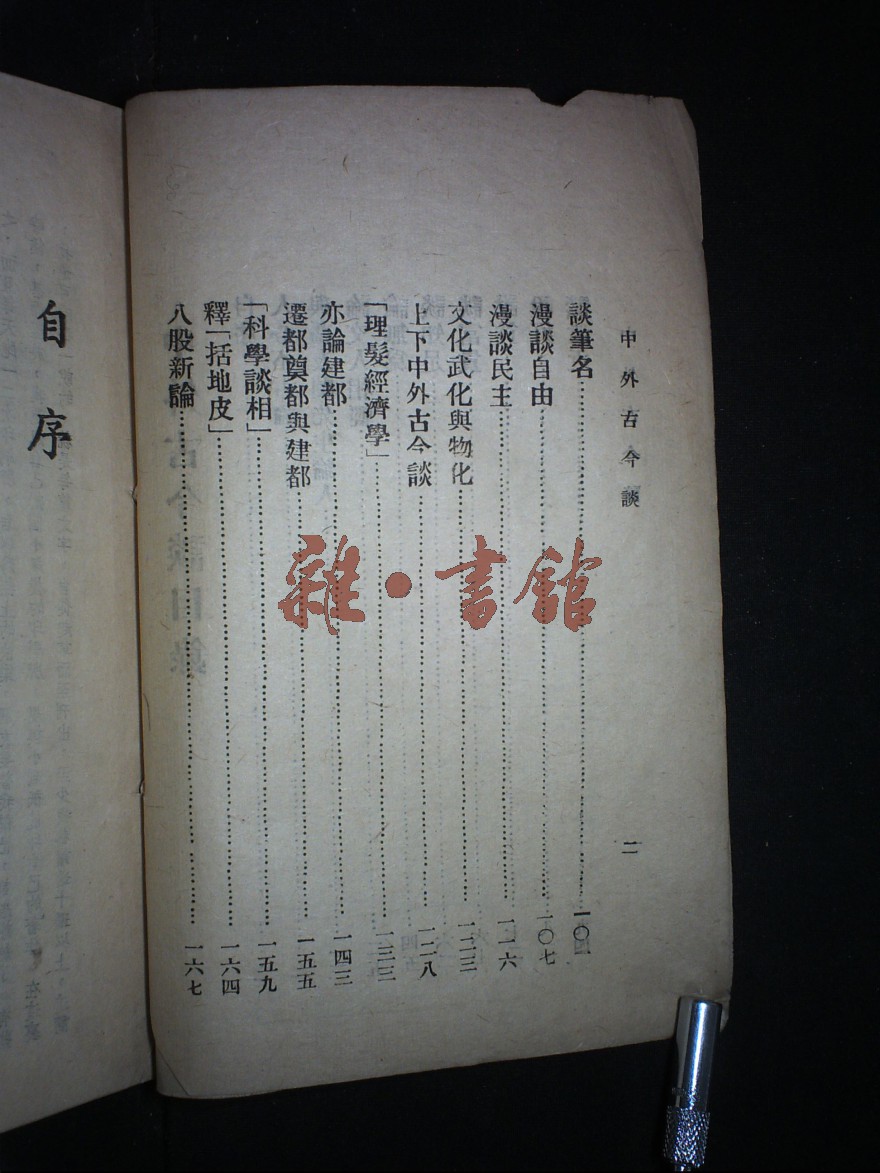 中外古今談
二
談筆名……一〇一
漫談自由……一〇七
漫談民主……一一六
文化武化與物化……一二三
上下中外古今談……一二八
「理髮經濟學」……一三三
亦論建都……一四三
遷都奠都與建都……一五五
「科學談相」……一五九
釋「括地皮」……一六四
八股新論……一六七
自序
雜·書館